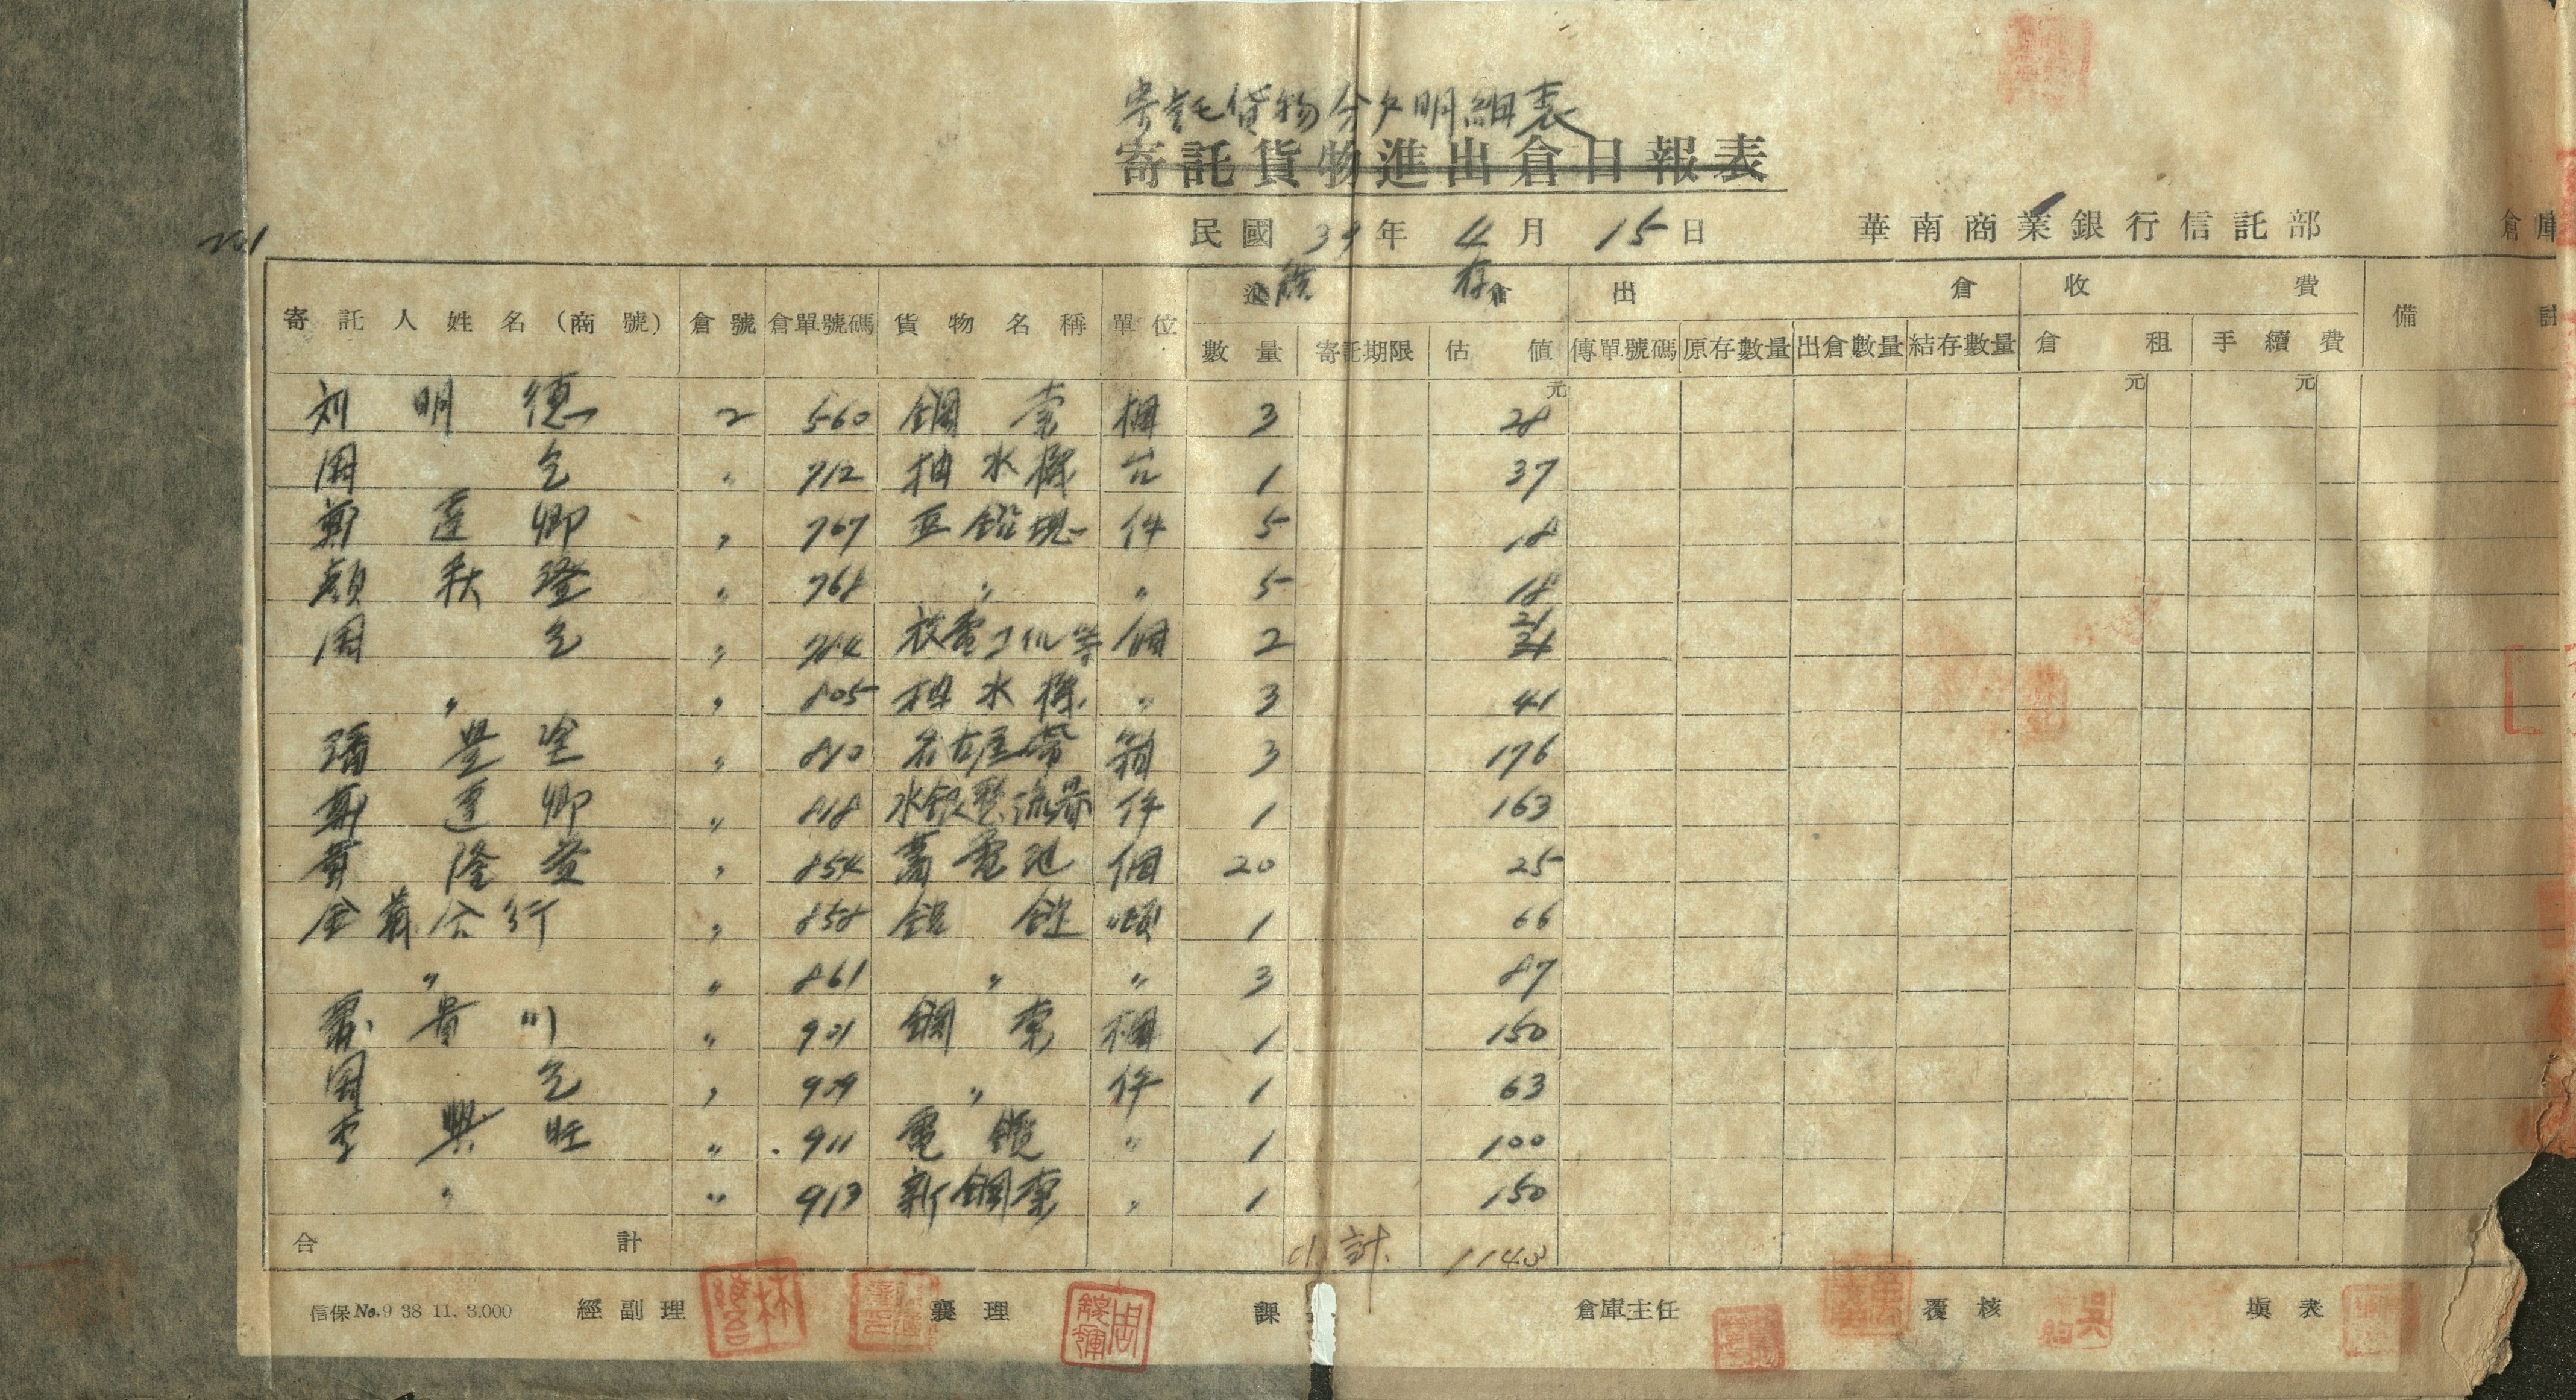 寄託貨物分戶明細表
寄託貨物進出倉日報表
民國 39 年 4 月 15 日 華南商業銀行信託部 倉庫
201
寄託人姓名(商號) 倉號 倉單號碼 貨物名稱 單位 進 結 存 倉 出 倉 收 費 備 註
數量 寄託期限 估值 傳單號碼 原存數量 出倉數量 結存數量 倉租 手續費
元 元 元
刘明德 2 560 鋼索 梱 3 28
周乞 〃 712 抽水機 台 1 37
鄭達卿 〃 767 亞鉛塊 件 5 18
顏秋澄 〃 768 〃 〃 5 18
周乞 〃 784 放電工 等 個 2 21
〃 〃 805 抽水機 〃 3 41
潘 塗 〃 810 名古屋帶 箱 3 176
鄭達卿 〃 818 水銀整流器 件 1 163
黃隆 〃 854 蓄電池 個 20 25
金義合行 〃 858 鋁錠 噸 1 66
〃 〃 861 〃 〃 3 87
貴川 〃 901 鋼索 梱 1 150
周乞 〃 909 〃 件 1 63
李興旺 〃 911 電纜 〃 1 100
〃 〃 913 新鋼索 〃 1 150
合計 小計 1143
信保 No.9 38 11. 3.000 經副理 襄理 課 倉庫主任 覆核 填表